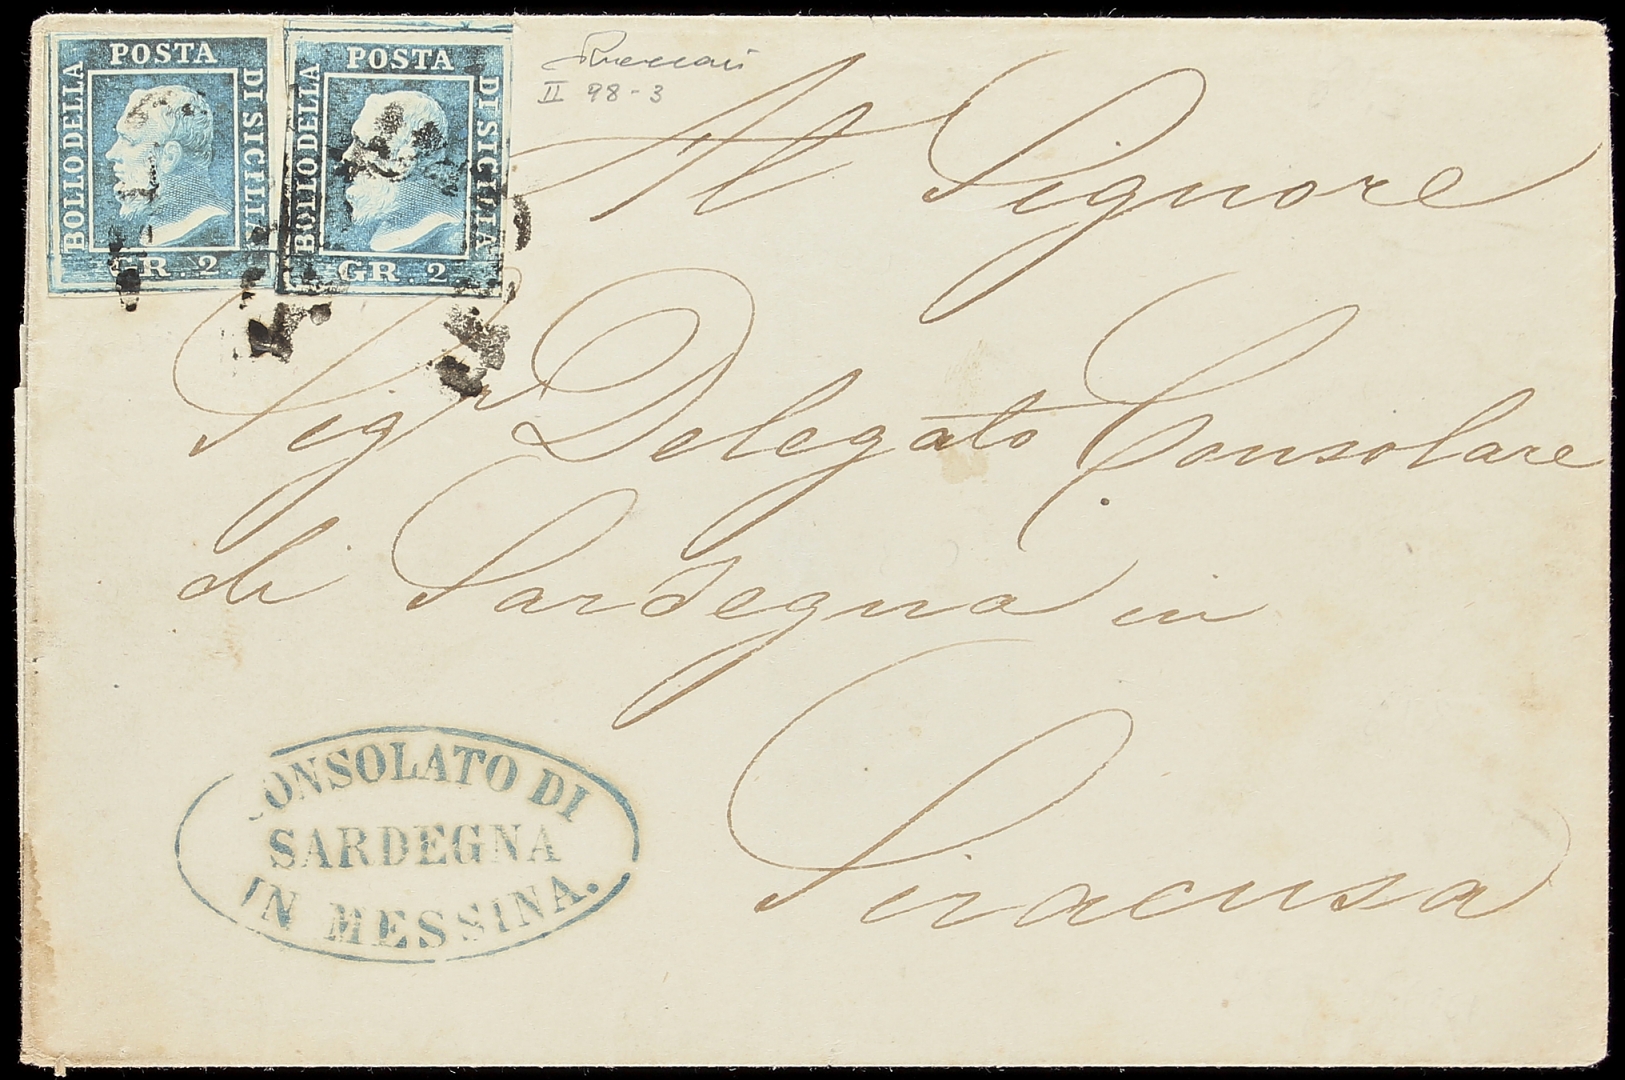 POSTA
BOLLO DELLA
DI SICILIA
GR. 2
POSTA
BOLLO DELLA
DI SICILIA
GR. 2
II 98-3
Al Signore
Sigr Delegato Consolare
di Sardegna in
Siracusa
CONSOLATO DI
SARDEGNA
IN MESSINA.